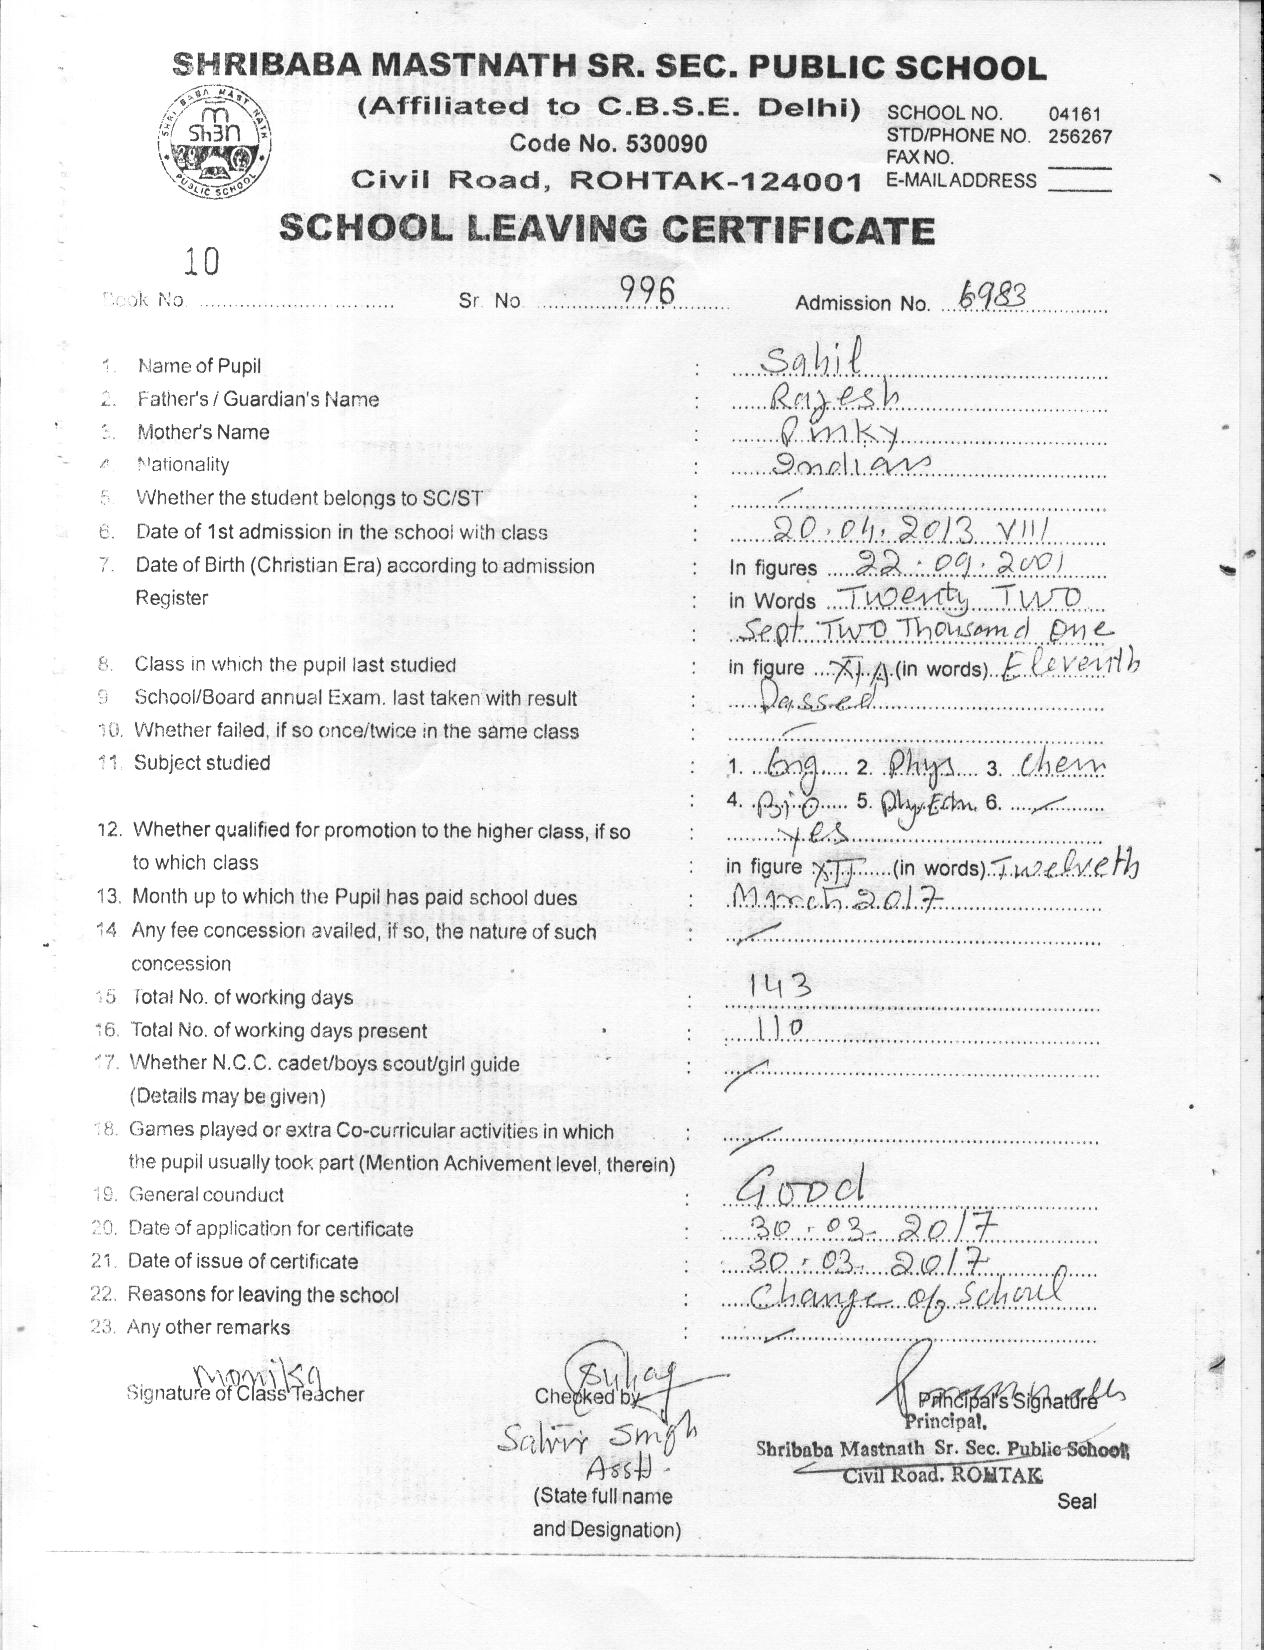 SHRIBABA MASTNATH SR. SEC. PUBLIC SCHOOL
(Affiliated to C.B.S.E. Delhi)
SCHOOL NO. 04161
Code No. 530090
STD/PHONE NO. 256267
FAX NO.
Civil Road, ROHTAK-124001
E-MAIL ADDRESS
SHRI BABA MAST NATH
PUBLIC SCHOOL
SCHOOL LEAVING CERTIFICATE
10
Book No. Sr. No 996 Admission No. 6983
1. Name of Pupil : Sahil
2. Father's / Guardian's Name : Rajesh
3. Mother's Name : Pinky
4. Nationality : Indian
5. Whether the student belongs to SC/ST :
6. Date of 1st admission in the school with class : 20.04.2013 VIII
7. Date of Birth (Christian Era) according to admission : In figures 22.09.2001
Register : in Words Twenty Two
: Sept Two Thousand One
8. Class in which the pupil last studied : in figure XI A (in words) Eleventh
9 School/Board annual Exam. last taken with result : Passed
10. Whether failed, if so once/twice in the same class :
11. Subject studied : 1. Eng 2. Phys 3. Chem
: 4. Bio 5. Phy.Edn. 6.
12. Whether qualified for promotion to the higher class, if so : Yes
to which class : in figure XII (in words) Twelveth
13. Month up to which the Pupil has paid school dues : March 2017
14 Any fee concession availed, if so, the nature of such :
concession
15 Total No. of working days : 143
16. Total No. of working days present : 110
17. Whether N.C.C. cadet/boys scout/girl guide :
(Details may be given)
18. Games played or extra Co-curricular activities in which :
the pupil usually took part (Mention Achivement level, therein)
19. General counduct : Good
20. Date of application for certificate : 30.03.2017
21. Date of issue of certificate : 30.03.2017
22. Reasons for leaving the school : Change of School
23. Any other remarks :
Monika
Signature of Class Teacher Checked by Principal's Signature
Principal,
Singh
Shribaba Mastnath Sr. Sec. Public School,
Civil Road, ROHTAK
(State full name
Seal
and Designation)